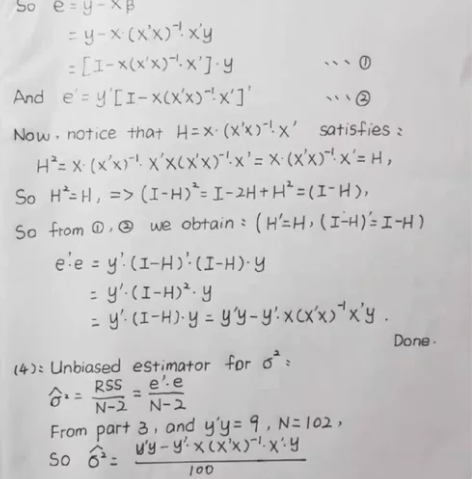 So e = y - Xβ
= y - X·(X'X)⁻¹·X'y
= [I - X(X'X)⁻¹·X']·y ··· ①
And e' = y'[I - X(X'X)⁻¹·X']' ··· ②
Now, notice that H = X·(X'X)⁻¹·X' satisfies:
H² = X·(X'X)⁻¹·X'X(X'X)⁻¹·X' = X·(X'X)⁻¹·X' = H,
So H² = H, => (I-H)² = I - 2H + H² = (I-H),
So from ①, ② we obtain: (H' = H, (I-H)' = I-H)
e'·e = y'·(I-H)'·(I-H)·y
= y'·(I-H)²·y
= y'·(I-H)·y = y'y - y'·X(X'X)⁻¹X'y.
Done.
(4): Unbiased estimator for σ²:
σ̂² = RSS/N-2 = e'·e/N-2
From part 3, and y'y = 9, N = 102,
So σ̂² = y'y - y'·X(X'X)⁻¹·X'·y/100